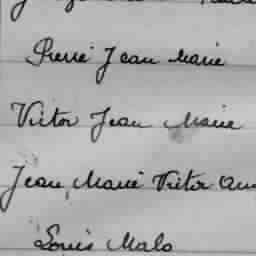 Pierre Jean Marie
Victor Jean Marie
Jean, Marie Victor
Louis Malo